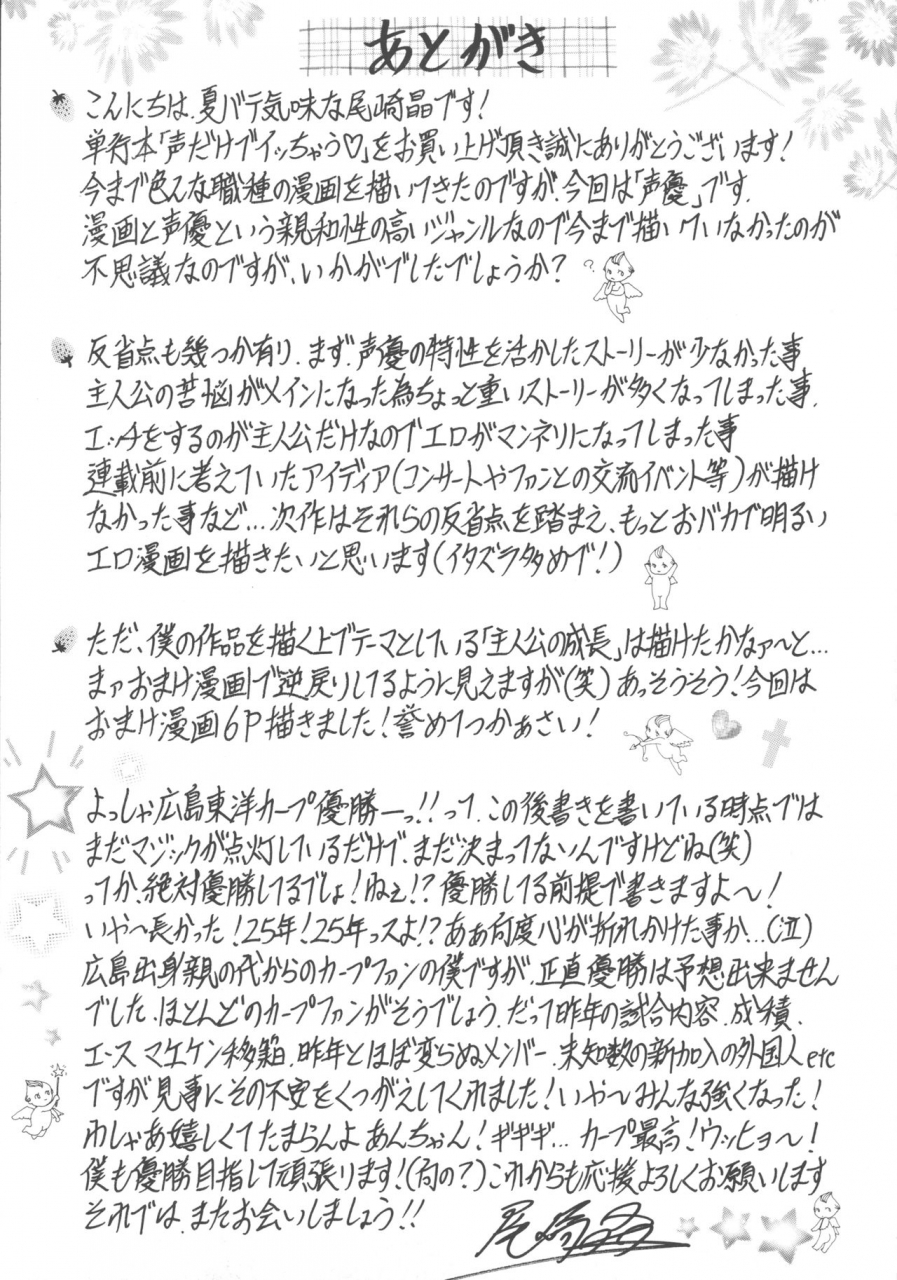 あとがき
こんにちは、夏バテ気味な尾崎晶です!
単行本「声だけでイッちゃう♡」をお買い上げ頂き誠にありがとうございます!
今まで色んな職種の漫画を描いてきたのですが、今回は「声優」です.
漫画と声優という親和性の高いジャンルなので今まで描いていなかったのが
不思議なのですが、いかがでしたでしょうか?
反省点も幾つか有り、まず、声優の特性を活かしたストーリーが少なかった事
主人公の苦悩がメインになった為ちょっと重いストーリーが多くなってしまった事.
エッチをするのが主人公だけなのでエロがマンネリになってしまった事
連載前に考えていたアイディア(コンサートやファンとの交流イベント等)が描け
なかった事など...次作はそれらの反省点を踏まえ、もっとおバカで明るい
エロ漫画を描きたいと思います(イタズラ多めで!)
ただ、僕の作品を描く上でテーマとしている「主人公の成長」は描けたかなァ〜と...
まァおまけ漫画で逆戻りしてるように見えますが(笑)あっそうそう!今回は
おまけ漫画6P描きました!誉めてつかぁさい!
よっしゃ広島東洋カープ優勝ーっ!!って、この後書きを書いている時点では
まだマジックが点灯しているだけで、まだ決まってないんですけどね(笑)
ってか、絶対優勝してるでしょ!ねぇ!?優勝してる前提で書きますよ〜!
いや〜長かった!25年!25年っスよ!?あぁ何度心が折れかけた事か...(泣)
広島出身親の代からのカープファンの僕ですが、正直優勝は予想出来ません
でした.ほとんどのカープファンがそうでしょう、だって昨年の試合内容、成績、
エース マエケン移籍、昨年とほぼ変らぬメンバー、未知数の新加入の外国人etc
ですが見事にその不安をくつがえしてくれました!いや〜みんな強くなった!
わしゃあ嬉しくてたまらんよ あんちゃん!ギギギ...カープ最高!ウッヒョ〜!
僕も優勝目指して頑張ります!(何の?)これからも応援よろしくお願いします
それでは、またお会いしましょう!!
尾崎晶